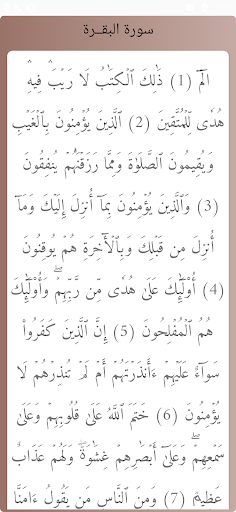 سورة البقــرة
الٓمٓ (1) ذَٰلِكَ ٱلۡكِتَٰبُ لَا رَيۡبَۛ فِيهِۛ
هُدٗى لِّلۡمُتَّقِينَ (2) ٱلَّذِينَ يُؤۡمِنُونَ بِٱلۡغَيۡبِ
وَيُقِيمُونَ ٱلصَّلَوٰةَ وَمِمَّا رَزَقۡنَٰهُمۡ يُنفِقُونَ
(3) وَٱلَّذِينَ يُؤۡمِنُونَ بِمَآ أُنزِلَ إِلَيۡكَ وَمَآ
أُنزِلَ مِن قَبۡلِكَ وَبِٱلۡأٓخِرَةِ هُمۡ يُوقِنُونَ
(4) أُوْلَٰٓئِكَ عَلَىٰ هُدٗى مِّن رَّبِّهِمۡۖ وَأُوْلَٰٓئِكَ
هُمُ ٱلۡمُفۡلِحُونَ (5) إِنَّ ٱلَّذِينَ كَفَرُواْ
سَوَآءٌ عَلَيۡهِمۡ ءَأَنذَرۡتَهُمۡ أَمۡ لَمۡ تُنذِرۡهُمۡ لَا
يُؤۡمِنُونَ (6) خَتَمَ ٱللَّهُ عَلَىٰ قُلُوبِهِمۡ وَعَلَىٰ
سَمۡعِهِمۡۖ وَعَلَىٰٓ أَبۡصَٰرِهِمۡ غِشَٰوَةٞۖ وَلَهُمۡ عَذَابٌ
عَظِيمٞ (7) وَمِنَ ٱلنَّاسِ مَن يَقُولُ ءَامَنَّا